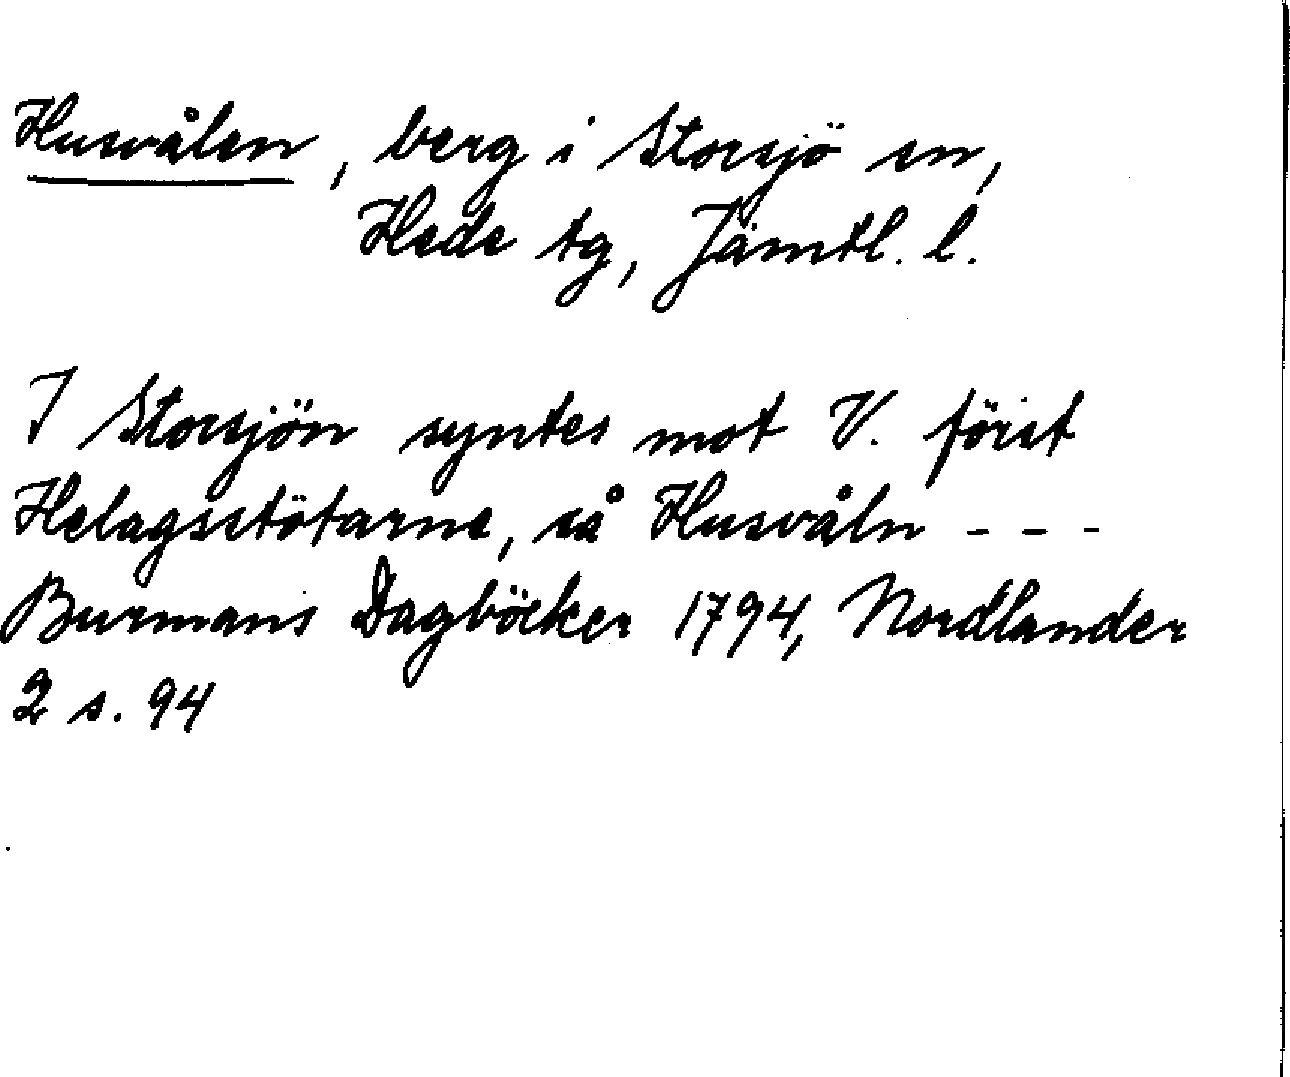 Husvålen, berg i Storsjö sn,
Hede tg, Jämtl. l.
I Storsjön syntes mot V. först
Helagsstötarne, så Husvåln - - -
Burmans Dagböcker 1794, Nordlander
2 s. 94